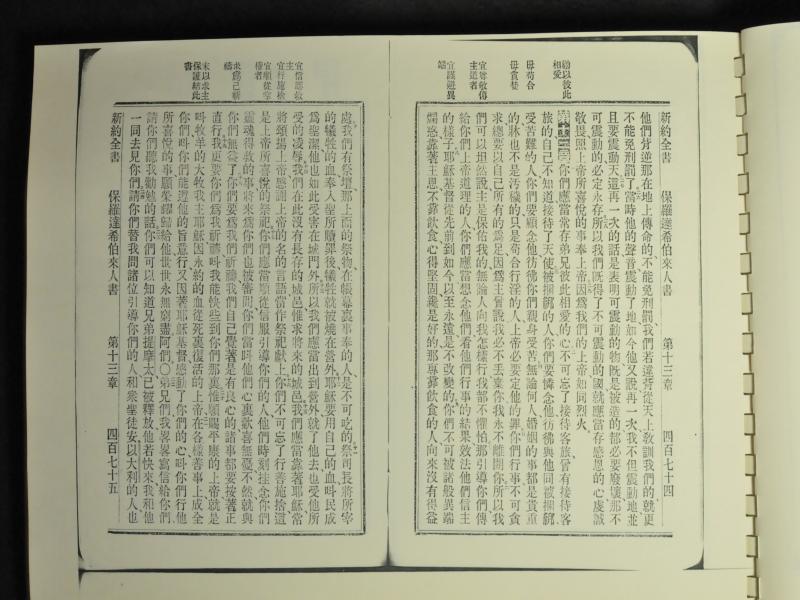 新約全書 保羅達希伯來人書 第十三章 四百七十四
他們背逆那在地上傳命的不能免刑罰我們若違背從天上教訓我們的就更
不能免刑罰了當時他的聲音震動了地如今他又說再一次我不但震動地並
且要震動天這再一次的話是表明可震動的物既是被造的都必要廢壞那不
可震動的必定永存所以我們既得了不可震動的國就應當存感恩的心虔誠
敬畏照上帝所喜悅的事奉上帝因爲我們的上帝如同烈火
第十三章你們應當常存弟兄彼此相愛的心不可忘了接待客旅曾有接待客
旅的自己不知道接待了天使被捆鎖的人你們要憐念他彷彿與他同被捆鎖
受苦難的人你們要顧念他彷彿你們親身受苦無論何人婚姻的事都是貴重
的牀也不是污穢的只是苟合行淫的人上帝必要定他的罪你們行事不可貪
求總要以自己所有的爲足因爲主曾說我必不丟棄你我永不離開你所以我
們可以坦然說主是保佑我的無論人向我怎樣行我都不懼怕那引導你們傳
給你們上帝道理的人你們應當想念他們看他們行事的結果效法他們信主
的樣子耶穌基督從先前到如今以至永遠是不改變的你們不可被諸般異端
煽惑靠著主恩不靠飲食心得堅固纔是好的那專靠飲食的人向來沒有得益
勸以彼此
相愛
毋苟合
毋貪婪
宜尊敬傳
主道者
宜謹避異
端
處我們有祭壇那上面的祭物在帳幕裏事奉的人是不可吃的祭司長將所宰
的犧牲的血奉入聖所贖罪後犧牲就被燒在營外耶穌要用自己的血叫民成
爲聖潔他也如此受害在城門外所以我們應當出到營外就了他去也受他所
受的凌辱我們在此沒有長存的城邑惟求將來的城邑我們應當靠著耶穌常
將頌揚上帝感謝上帝的名的言語當作祭祀獻上你們不可忘了行善施捨這
是上帝所喜悅的祭祀你們應當順從信服引導你們的人他們時刻挂念你們
靈魂得救的事將來爲你們也被審問你們當叫他們心裏歡喜無憂不然就與
你們無益了你們要爲我們祈禱我們自己覺著是有良心的諸事都要按著正
直行我更要你們爲我祈禱叫我能快些到你們那裏惟願賜平康的上帝就是
叫牧羊的大牧我主耶穌因永約的血從死裏復活的上帝在各樣善事上成全
你們叫你們能遵他的旨意行又因著耶穌基督感動了你們的心叫你們行他
所喜悅的事願榮耀歸給他世世永無窮盡阿們〇弟兄們我畧畧寫信給你們
請你們聽我勸勉的話你們可以知道兄弟提摩太已被釋放他若快來我和他
一同去見你們請你們替我問諸位引導你們的人和衆聖徒安以大利的人也
宜信認救
主
宜行施捨
宜順從宰
權者
求爲己祈
禱
末以求主
保護結此
書
新約全書 保羅達希伯來人書 第十三章 四百七十五